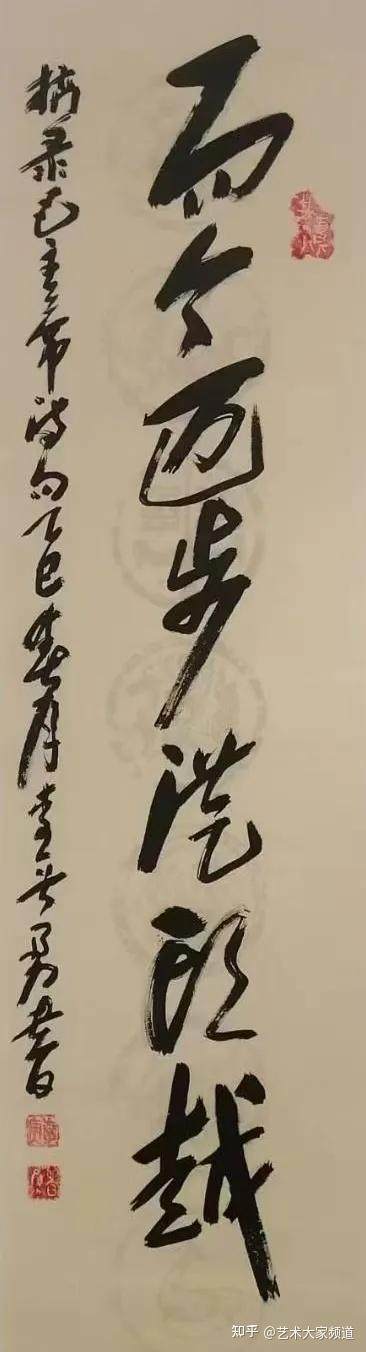 而今迈步从头越
摘录毛主席诗句乙巳春月李长勇书
知乎 @艺术大家频道